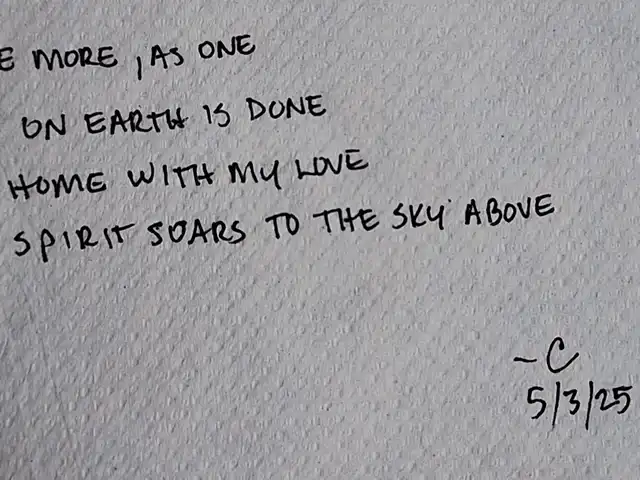 E MORE, AS ONE
ON EARTH IS DONE
HOME WITH MY LOVE
SPIRIT SOARS TO THE SKY ABOVE
- C
5/3/25